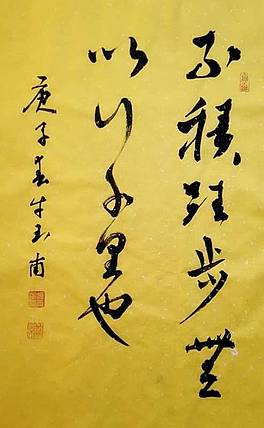 不積跬步無
以行千里也
庚子春牛玉甫